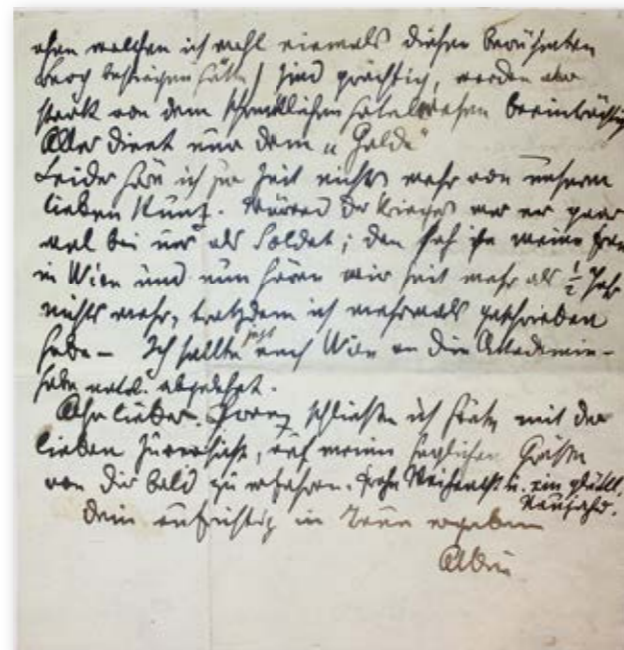 ohne welchen ich wohl niemals diesen berühmten
Berg bestiegen hätte) sind prächtig, werden aber
stark von dem schrecklichen Hotelwesen beeinträchtigt
Alles dient nur dem „Golde“
Leider höre ich zur Zeit nichts mehr von unserm
lieben Kunz. Während des Krieges war er paar
mal bei uns als Soldat; dann sah ihn meine Frau
in Wien und nun hören wir seit mehr als ½ Jahr
nichts mehr, trotzdem ich mehrmals geschrieben
habe – Ich sollte jetzt nach Wien an die Akademie –
habe abgelehnt.
lieber schließe ich heute mit der
lieben Zuversicht, auf meine Grüße
von Dir bald zu erfahren. Frohe Weihnacht u. ein glückl.
Neujahr.
Dein aufrichtig in Treue ergebener
Albin